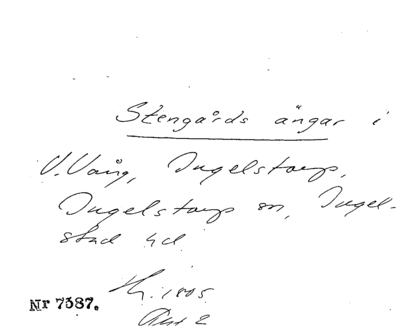 Stengårds ängar i
V. Vång, Ingelstorp,
Ingelstorps sn, Ingel-
stad hd
1805
Nr 7387.
2